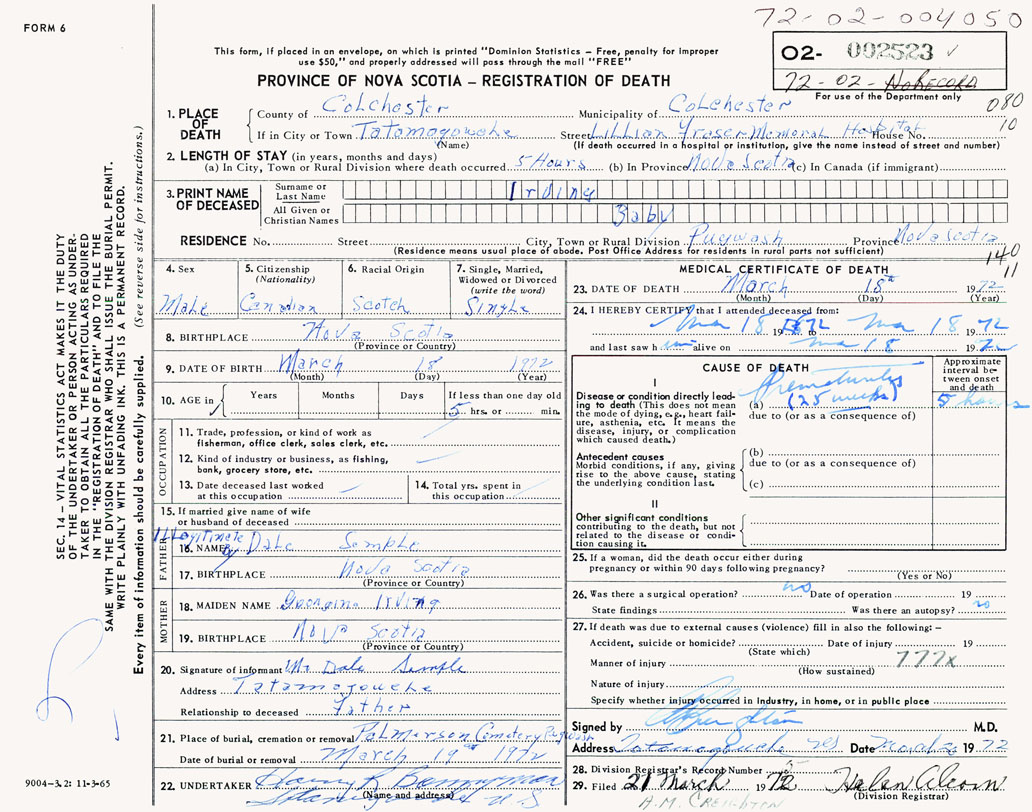 72-02-004050
FORM 6
O2- 002523 ✓
This form, if placed in an envelope, on which is printed "Dominion Statistics – Free, penalty for improper
use $50," and properly addressed will pass through the mail "FREE"
72-02-NoRECORD
PROVINCE OF NOVA SCOTIA – REGISTRATION OF DEATH
For use of the Department only
080
10
1. PLACE OF DEATH
County of Colchester Municipality of Colchester
If in City or Town Tatamagouche Street Lillian Fraser Memorial Hospital House No.
(Name) (If death occurred in a hospital or institution, give the name instead of street and number)
2. LENGTH OF STAY (in years, months and days)
(a) In City, Town or Rural Division where death occurred 5 Hours (b) In Province Nova Scotia (c) In Canada (if immigrant)
3. PRINT NAME OF DECEASED
Surname or Last Name Irving
All Given or Christian Names Baby
RESIDENCE No. Street City, Town or Rural Division Pugwash Province Nova Scotia
(Residence means usual place of abode. Post Office Address for residents in rural parts not sufficient)
140
11
4. Sex Male
5. Citizenship (Nationality) Canadian
6. Racial Origin Scotch
7. Single, Married, Widowed or Divorced (write the word) Single
8. BIRTHPLACE Nova Scotia
(Province or Country)
9. DATE OF BIRTH March 18 1972
(Month) (Day) (Year)
10. AGE in Years Months Days If less than one day old
5 hrs. or min.
OCCUPATION
11. Trade, profession, or kind of work as
fisherman, office clerk, sales clerk, etc.
12. Kind of industry or business, as fishing,
bank, grocery store, etc.
13. Date deceased last worked
at this occupation
14. Total yrs. spent in
this occupation
15. If married give name of wife
or husband of deceased
Illegitimate
FATHER
16. NAME Dale Semple
17. BIRTHPLACE Nova Scotia
(Province or Country)
MOTHER
18. MAIDEN NAME Georgina Irving
19. BIRTHPLACE Nova Scotia
(Province or Country)
20. Signature of informant Mr Dale Semple
Address Tatamagouche
Relationship to deceased Father
21. Place of burial, cremation or removal Palmerson Cemetery Pugwash
Date of burial or removal March 19 1972
22. UNDERTAKER
(Name and address)
MEDICAL CERTIFICATE OF DEATH
23. DATE OF DEATH March 18th 1972
(Month) (Day) (Year)
24. I HEREBY CERTIFY that I attended deceased from:
Mar 18 1972 to Mar 18 1972
and last saw him alive on Mar 18 1972
CAUSE OF DEATH
Approximate interval between onset and death
I
Disease or condition directly leading to death (This does not
the mode of dying, e.g., heart failure, asthenia, etc. It means the
disease, injury, or complication
which caused death.)
Prematurity
(a) (25 weeks) 5 hours
due to (or as a consequence of)
Antecedent causes
Morbid conditions, if any, giving
rise to the above cause, stating
the underlying condition last.
(b)
due to (or as a consequence of)
(c)
II
Other significant conditions
contributing to the death, but not
related to the disease or condition causing it.
25. If a woman, did the death occur either during
pregnancy or within 90 days following pregnancy?
(Yes or No)
26. Was there a surgical operation? no Date of operation 19
State findings Was there an autopsy? no
27. If death was due to external causes (violence) fill in also the following: –
Accident, suicide or homicide? Date of injury 19
(State which)
Manner of injury 777x
(How sustained)
Nature of injury
Specify whether injury occurred in Industry, in home, or in public place
Signed by M.D.
Address Tatamagouche NS Date March 20 1972
28. Division Registrar's Record Number
29. Filed 21 March 1972 Helen Aleorn
(Division Registrar)
A.M. CREIGHTON
SEC. 14 – VITAL STATISTICS ACT MAKES IT THE DUTY
OF THE UNDERTAKER OR PERSON ACTING AS UNDERTAKER TO OBTAIN ALL THE PARTICULARS REQUIRED
IN THE "REGISTRATION OF DEATH" AND TO FILE THE
SAME WITH THE DIVISION REGISTRAR WHO SHALL ISSUE THE BURIAL PERMIT.
WRITE PLAINLY WITH UNFADING INK. THIS IS A PERMANENT RECORD.
Every item of information should be carefully supplied. (See reverse side for instructions.)
9004-3.2: 11-3-65